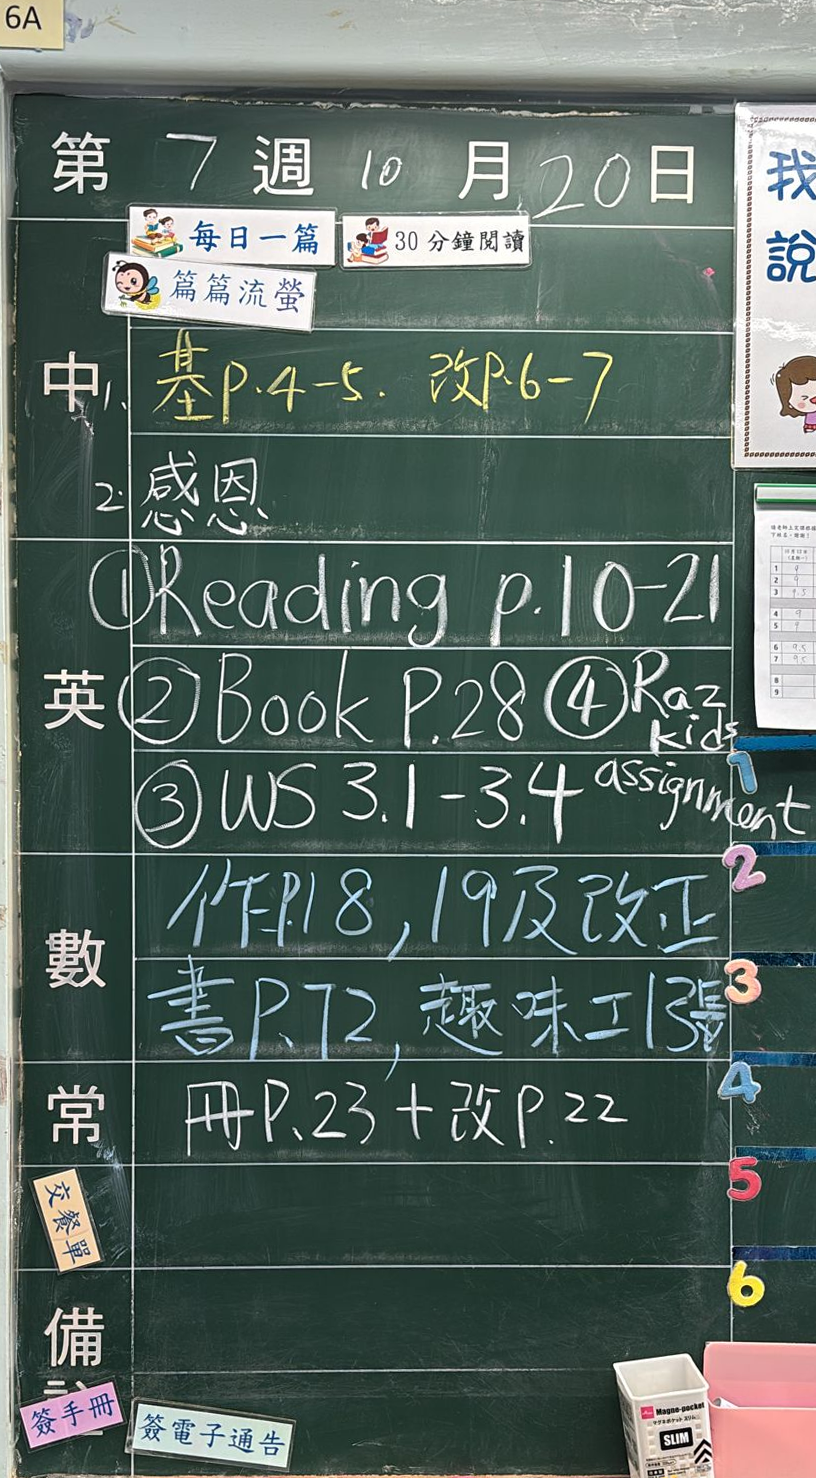 6A
第 7 週 10 月 20 日
每日一篇
30 分鐘閱讀
篇篇流螢
中 1. 基P.4-5. 改P.6-7
2. 感恩
英
① Reading p.10-21
② Book P.28 ④ Raz kids assignment
③ WS 3.1-3.4
數
作P.18, 19及改正
書P.72, 趣味工1張
常 冊P.23+改P.22
交餐單
備
簽手冊
簽電子通告
我
說
1
2
3
4
5
6
Magne-pocket
マグネポケット スリム
SLIM